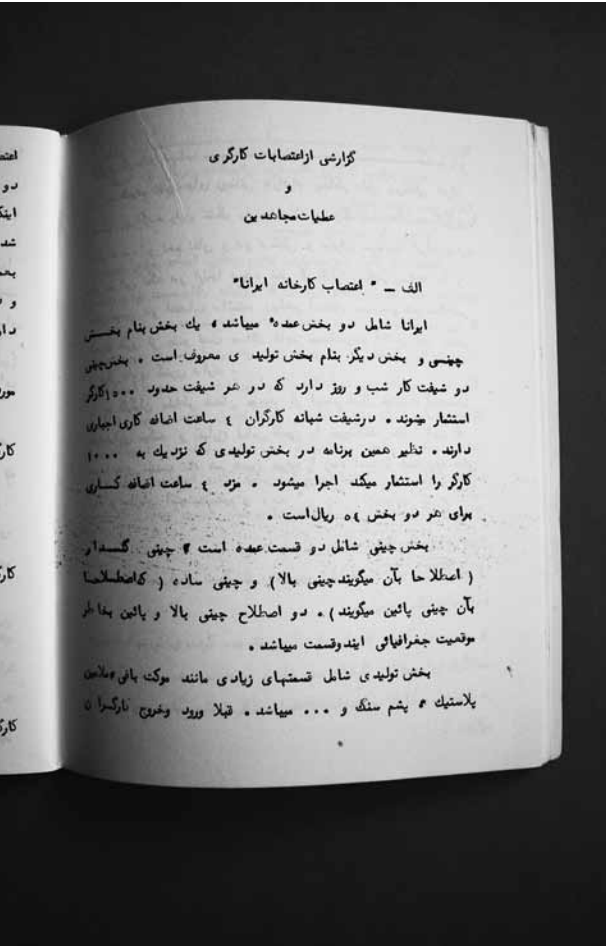 گزارشی از اعتصابات کارگری
و
عملیات مجاهدین
الف ــ " اعتصاب کارخانه ایرانا"
ایرانا شامل دو بخش عمده میباشد ، یك بخش بنام بخش
چینی و بخش دیگر بنام بخش تولیدی معروف است . بخش چینی
دو شیفت کار شب و روز دارد که در هر شیفت حدود ۱۵۰۰ کارگر
استثمار میشوند . در شیفت شبانه کارگران ٤ ساعت اضافه کاری اجباری
دارند . نظیر همین برنامه در بخش تولیدی که نزدیك به ۱۰۰۰
کارگر را استثمار میکند اجرا میشود . مزد ٤ ساعت اضافه کاری
برای هر دو بخش ٥٤ ریال است .
بخش چینی شامل دو قسمت عمده است ، چینی گلدار
( اصطلاحا بآن میگویند چینی بالا ) و چینی ساده ( که اصطلاحا
بآن چینی پائین میگویند ) . دو اصطلاح چینی بالا و پائین بخاطر
موقعیت جغرافیائی ایندو قسمت میباشد .
بخش تولیدی شامل قسمتهای زیادی مانند موکت بافی ، ملامین
پلاستیك ، پشم سنگ و ... میباشد . قبلا ورود و خروج کارگران
دو
شد
و
کارگ